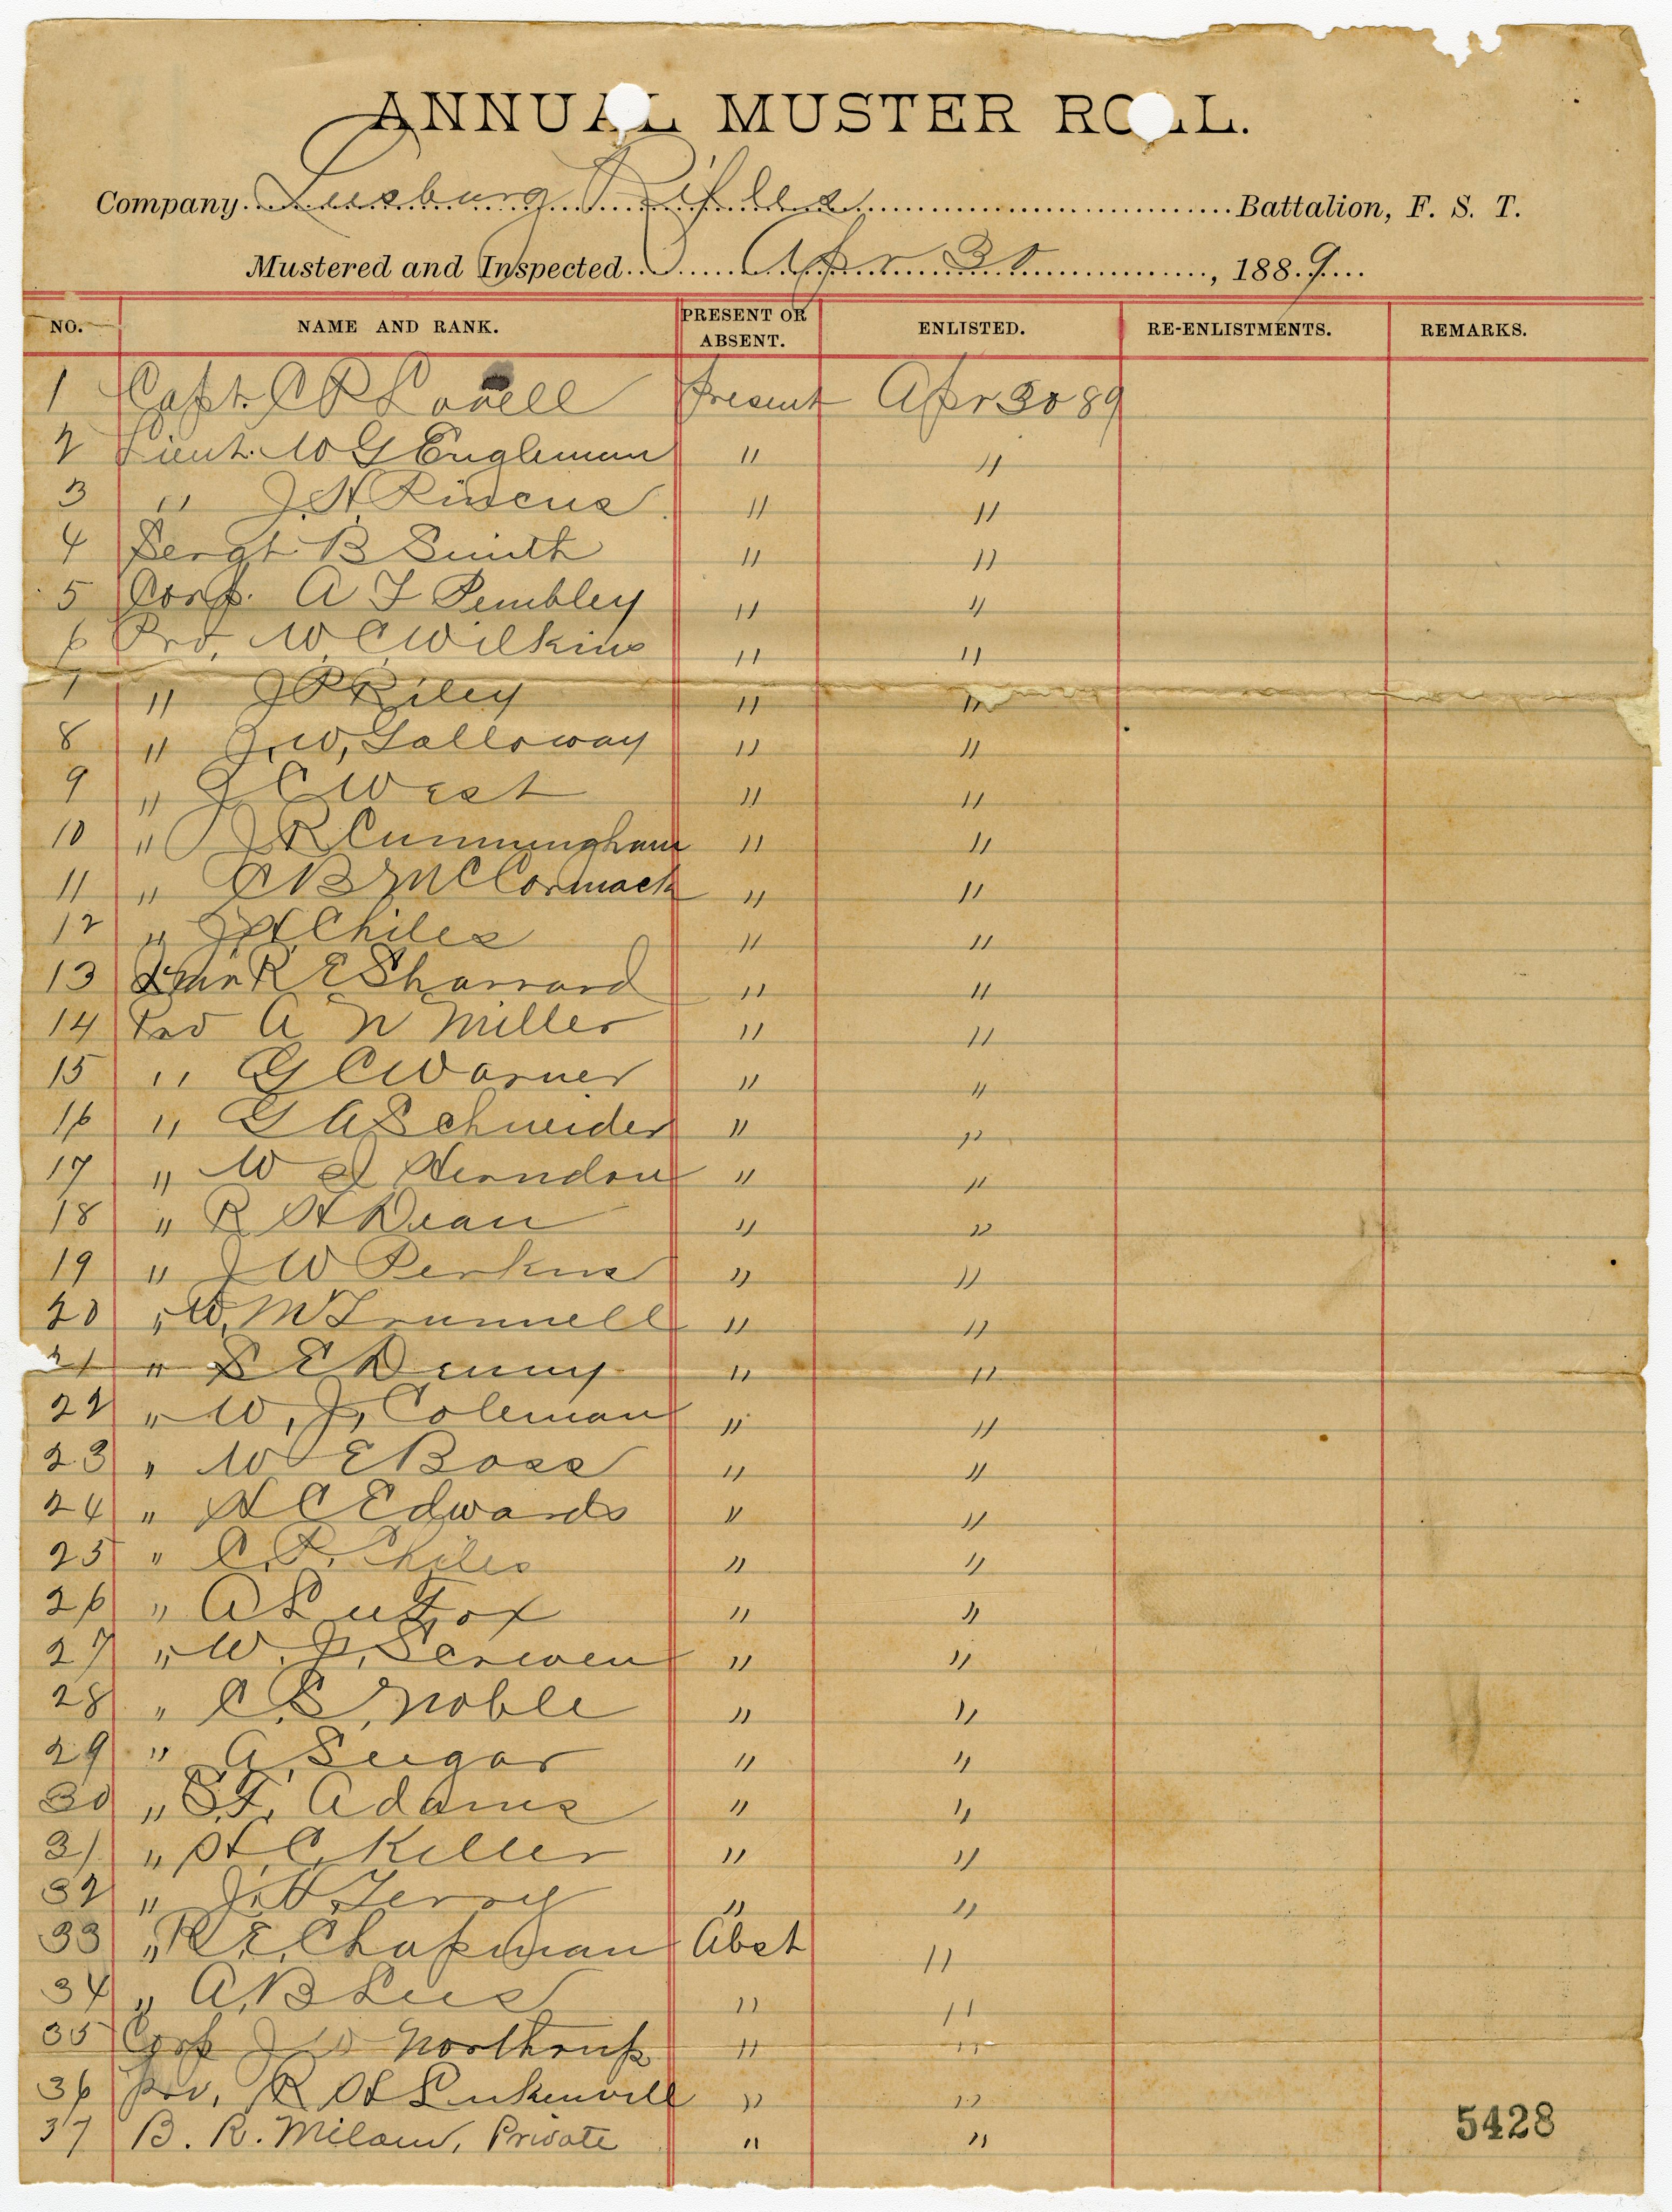 ANNUAL MUSTER ROLL.
Company Leesburg Rifles Battalion, F. S. T.
Mustered and Inspected Apr 30, 1889
NO. NAME AND RANK. PRESENT OR ABSENT. ENLISTED. RE-ENLISTMENTS. REMARKS.
1 Capt. C P Lovell Present Apr 30 89
2 Lieut. W G Engleman " "
3 " J. H. " "
4 Sergt B Smith " "
5 Corp. A F Pembley " "
6 Prv, W, C, Wilkins " "
7 " J P Riley " "
8 " J, W, Galloway " "
9 " J C West " "
10 " J R Cunningham " "
11 " C B McCormack " "
12 " J H Chiles " "
13 R E Sharrard " "
14 Prv A N Miller " "
15 " G C Warner " "
16 " G A Schneider " "
17 " W I Herndon " "
18 " R H Dean " "
19 " J W Perkins " "
20 " W, M Trunnell " "
21 " S E Denny " "
22 " W, J, Coleman " "
23 " W E Bass " "
24 " H C Edwards " "
25 " C. P. Chiles " "
26 " A " "
27 " W. J. Scriven " "
28 " C. S. Noble " "
29 " A. Sugar " "
30 " S. F. Adams " "
31 " H. C. Keller " "
32 " J. H. Terry " "
33 " R. E. Chapman Abst "
34 " A. B Lee " "
35 Corp J W Northrup " "
36 Prv. R H " "
37 B. R. Milam, Private " "
5428